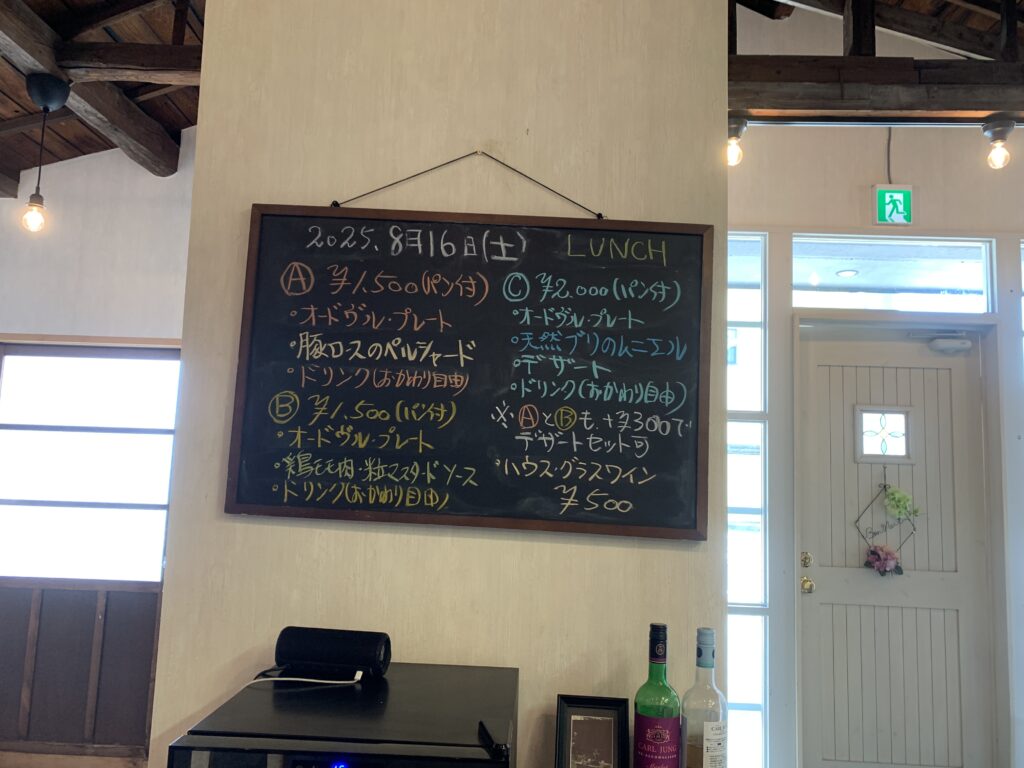 2025. 8月16日(土) LUNCH
Ⓐ ¥1.500(パン付)
・オードヴル・プレート
・豚ロースのペルシャード
・ドリンク(おかわり自由)
Ⓑ ¥1.500(パン付)
・オードヴル・プレート
・鶏もも肉・粒マスタードソース
・ドリンク(おかわり自由)
Ⓒ ¥2.000(パン付)
・オードヴル・プレート
・天然ブリのムニエル
・デザート
・ドリンク(おかわり自由)
※ⒶとⒷも、+¥300で
デザートセット可
・ハウス・グラスワイン
¥500
CARL JUNG
Merlot